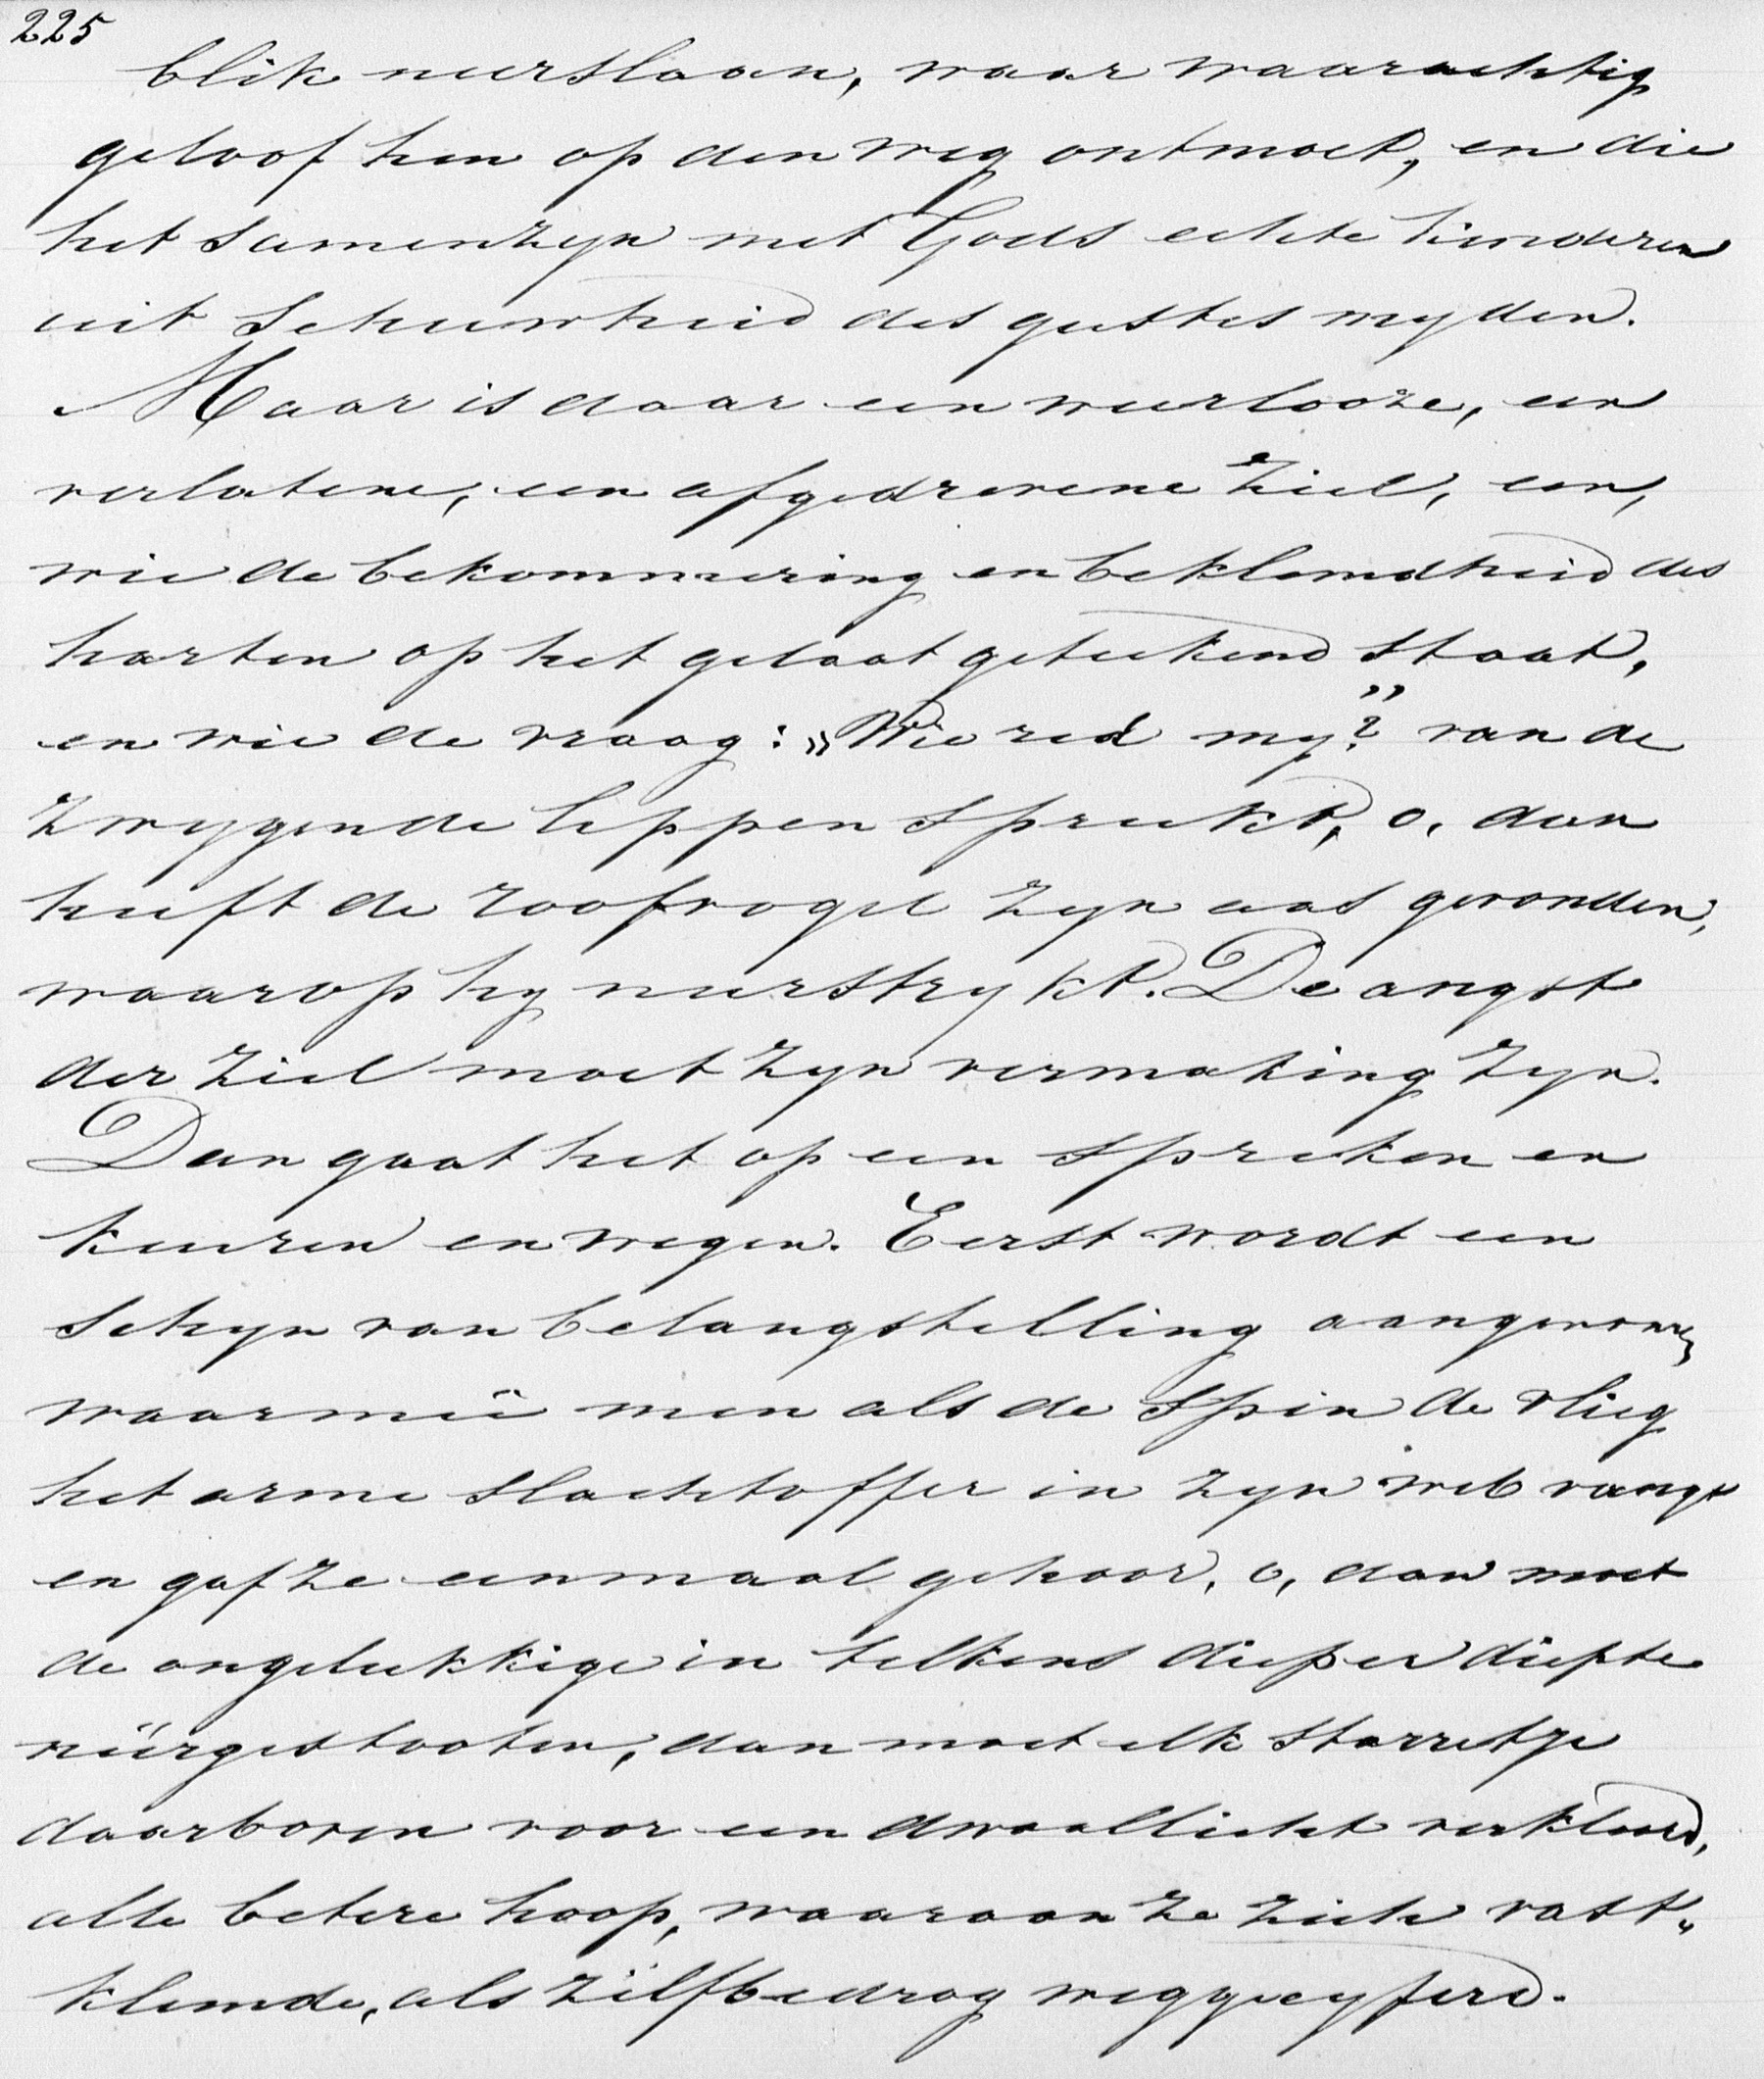 225
blik neerslaan, waar waarachtig
geloof hen op den weg ontmoet, en die
het samenzyn met Gods echte kinderen
uit schuwheid des geestes myden.
Maar is daar een weerlooze, een
verlatene, een afgedrevene ziel, een,
wie de bekommering en beklemdheid des
harten op het gelaat geteekend staat,
en wie de vraag: „Wie red my?” van de
zwygende lippen spreekt, o, dan
heeft de roofvogel zyn aas gevonden,
waarop hy neerstrykt. De angst
der ziel moet zyn vermaking zyn.
Dan gaat het op een spreken en
keuren en wegen. Eerst wordt een
schyn van belangstelling aangenomen
waarmeê men als de spin de vlieg
het arme slachtoffer in zyn web vangt
en gaf ze eenmaal gehoor, o, dan moet
de ongelukkige in telkens dieper diepte
neêrgestooten, dan moet elk starretje
daarboven voor een dwaallicht verklaard,
alle betere hoop, waaraan ze zich vast-
klemde, als zelfbedrog weggecyferd.